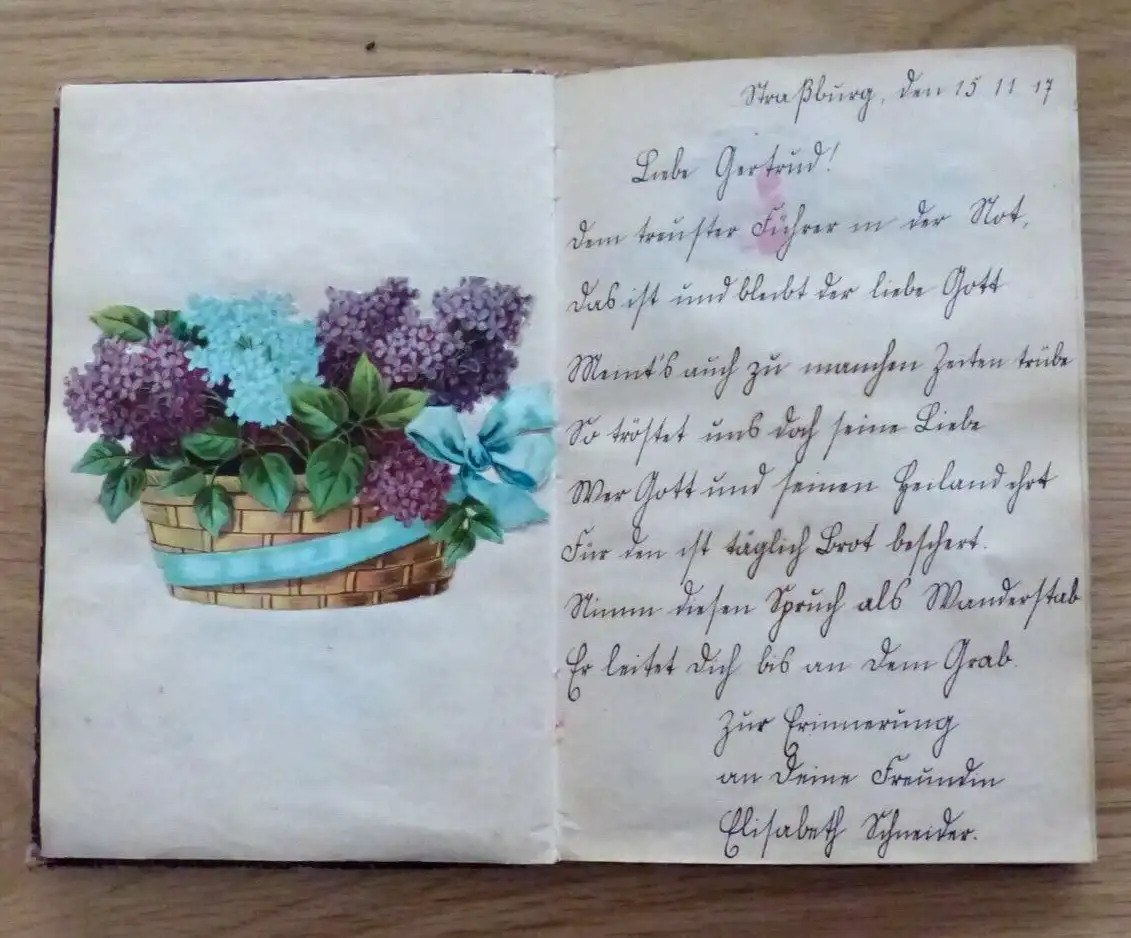 Straßburg, den 15 11 17
Liebe Gertrud!
Dein treuster Führer in der Not,
Das ist und bleibt der liebe Gott
Meint's auch zu manchen Zeiten trübe
So tröstet uns doch seine Liebe
Wer Gott und seinen Heiland ehrt
Für den ist täglich Brot beschert.
Nimm diesen Spruch als Wanderstab
Er leitet Dich bis an dem Grab.
Zur Erinnerung
an Deine Freundin
Elisabeth Schneider.